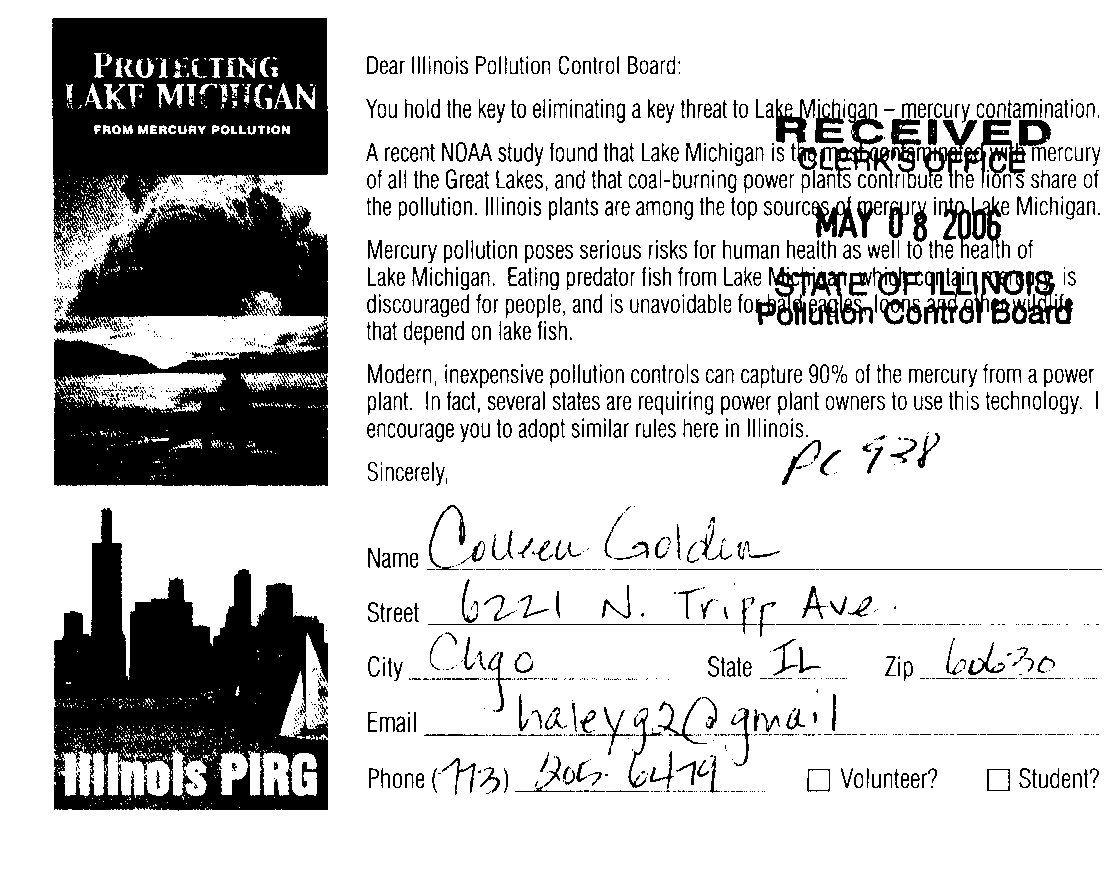 PROTECTING
LAKE MICHIGAN
FROM MERCURY POLLUTION
Illinois PIRG
Dear Illinois Pollution Control Board:
You hold the key to eliminating a key threat to Lake Michigan – mercury contamination.
A recent NOAA study found that Lake Michigan is the most contaminated with mercury
of all the Great Lakes, and that coal-burning power plants contribute the lion's share of
the pollution. Illinois plants are among the top sources of mercury into Lake Michigan.
Mercury pollution poses serious risks for human health as well to the health of
Lake Michigan. Eating predator fish from Lake Michigan, which contain mercury, is
discouraged for people, and is unavoidable for bald eagles, loons and other wildlife
that depend on lake fish.
Modern, inexpensive pollution controls can capture 90% of the mercury from a power
plant. In fact, several states are requiring power plant owners to use this technology. I
encourage you to adopt similar rules here in Illinois.
Sincerely,
RECEIVED
CLERK'S OFFICE
MAY 08 2006
STATE OF ILLINOIS
Pollution Control Board
PC 938
Name Colleen Golden
Street 6221 N. Tripp Ave.
City Chgo State IL Zip 60630
Email haleyg2@gmail
Phone (773) 6479
Volunteer? Student?